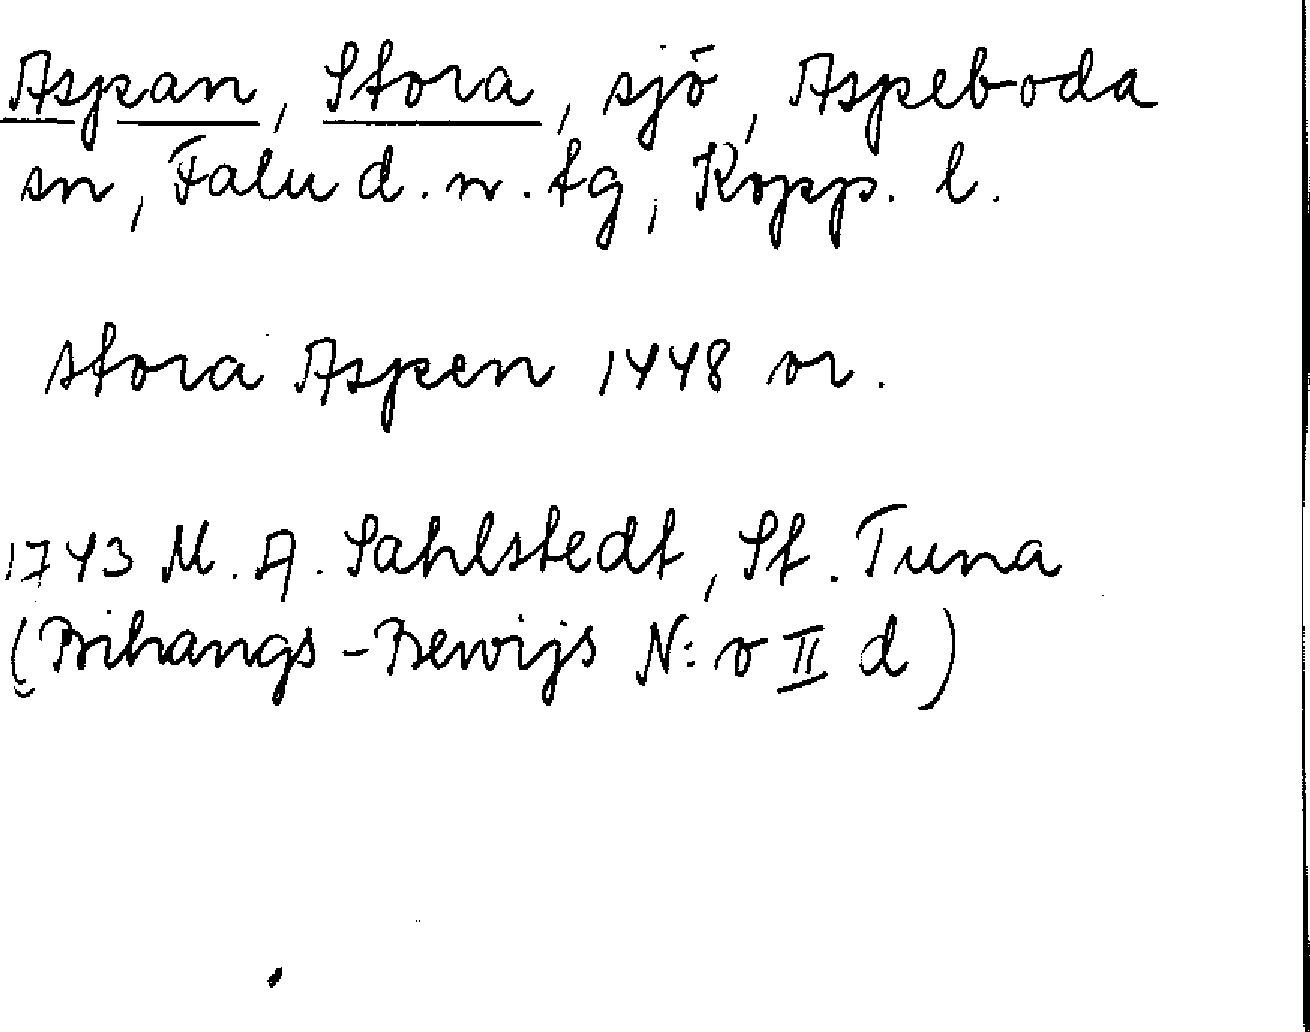 Aspan, Stora, sjö, Aspeboda
sn, Falu d. n. tg, Kopp. l.
stora Aspen 1448 or.
1743 M. A. Sahlstedt, St. Tuna
(Bihangs-Bewijs N: o II d)